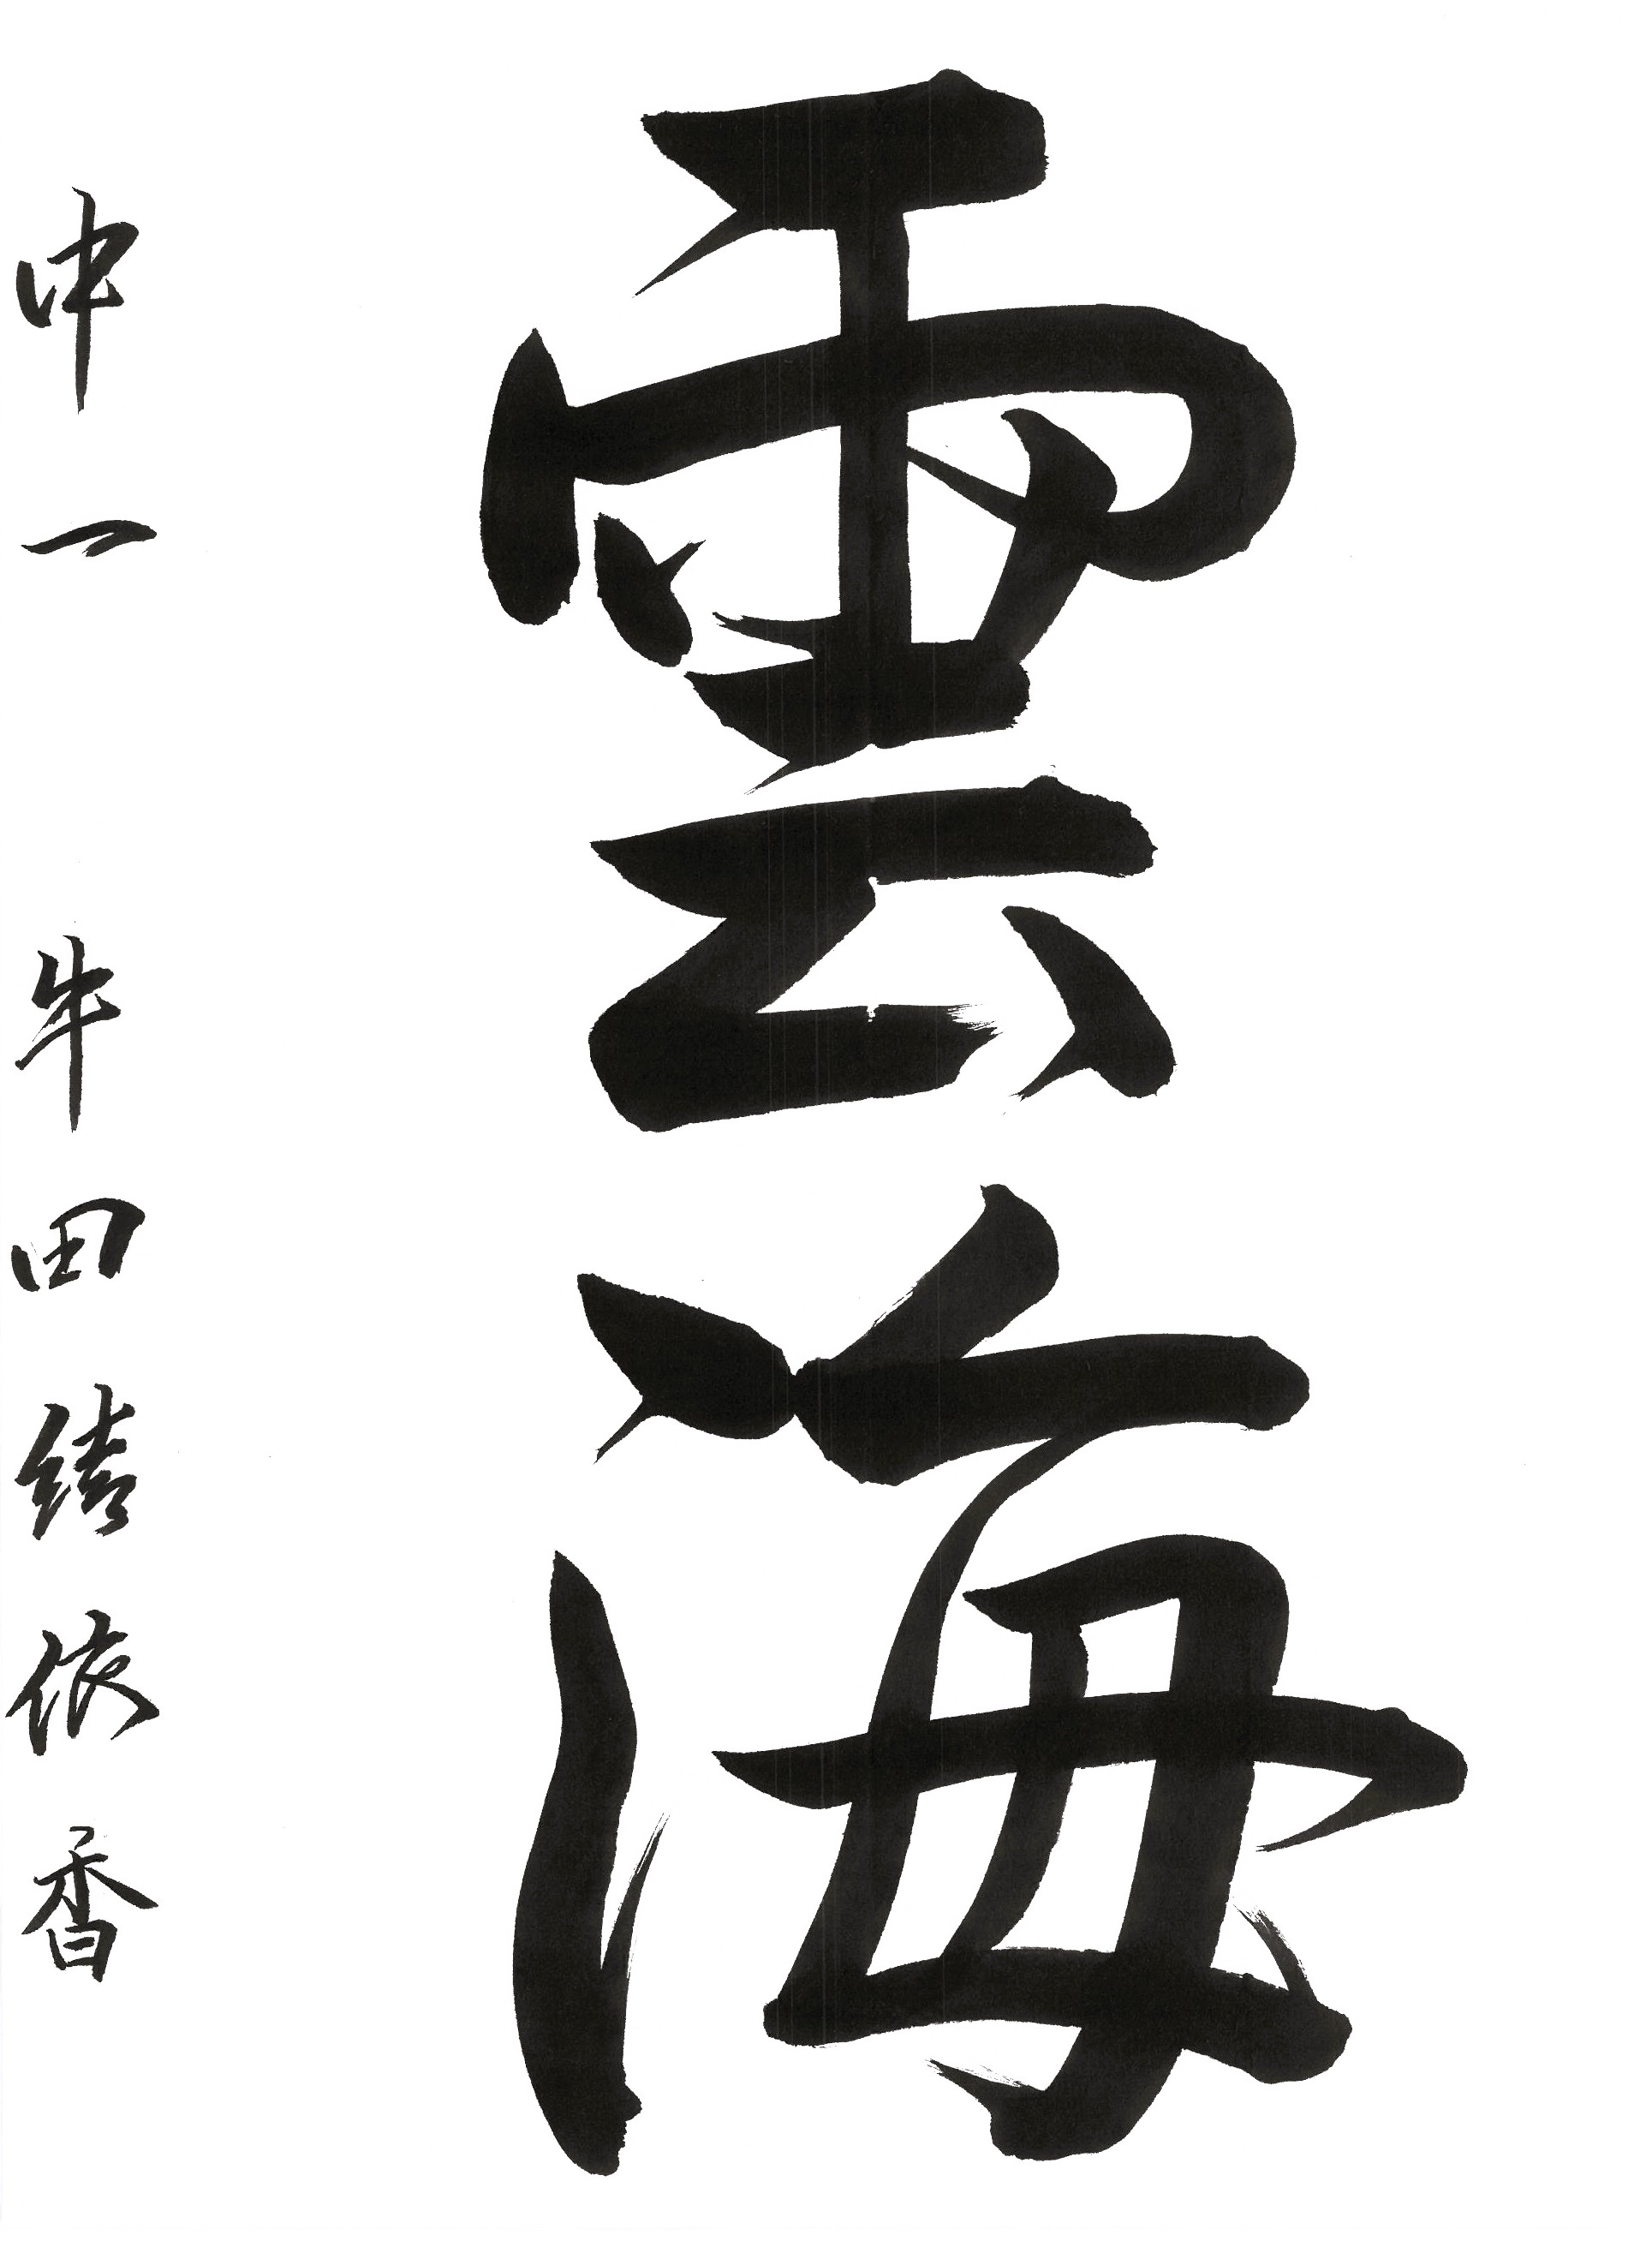 雲海
中一 牛田結依香